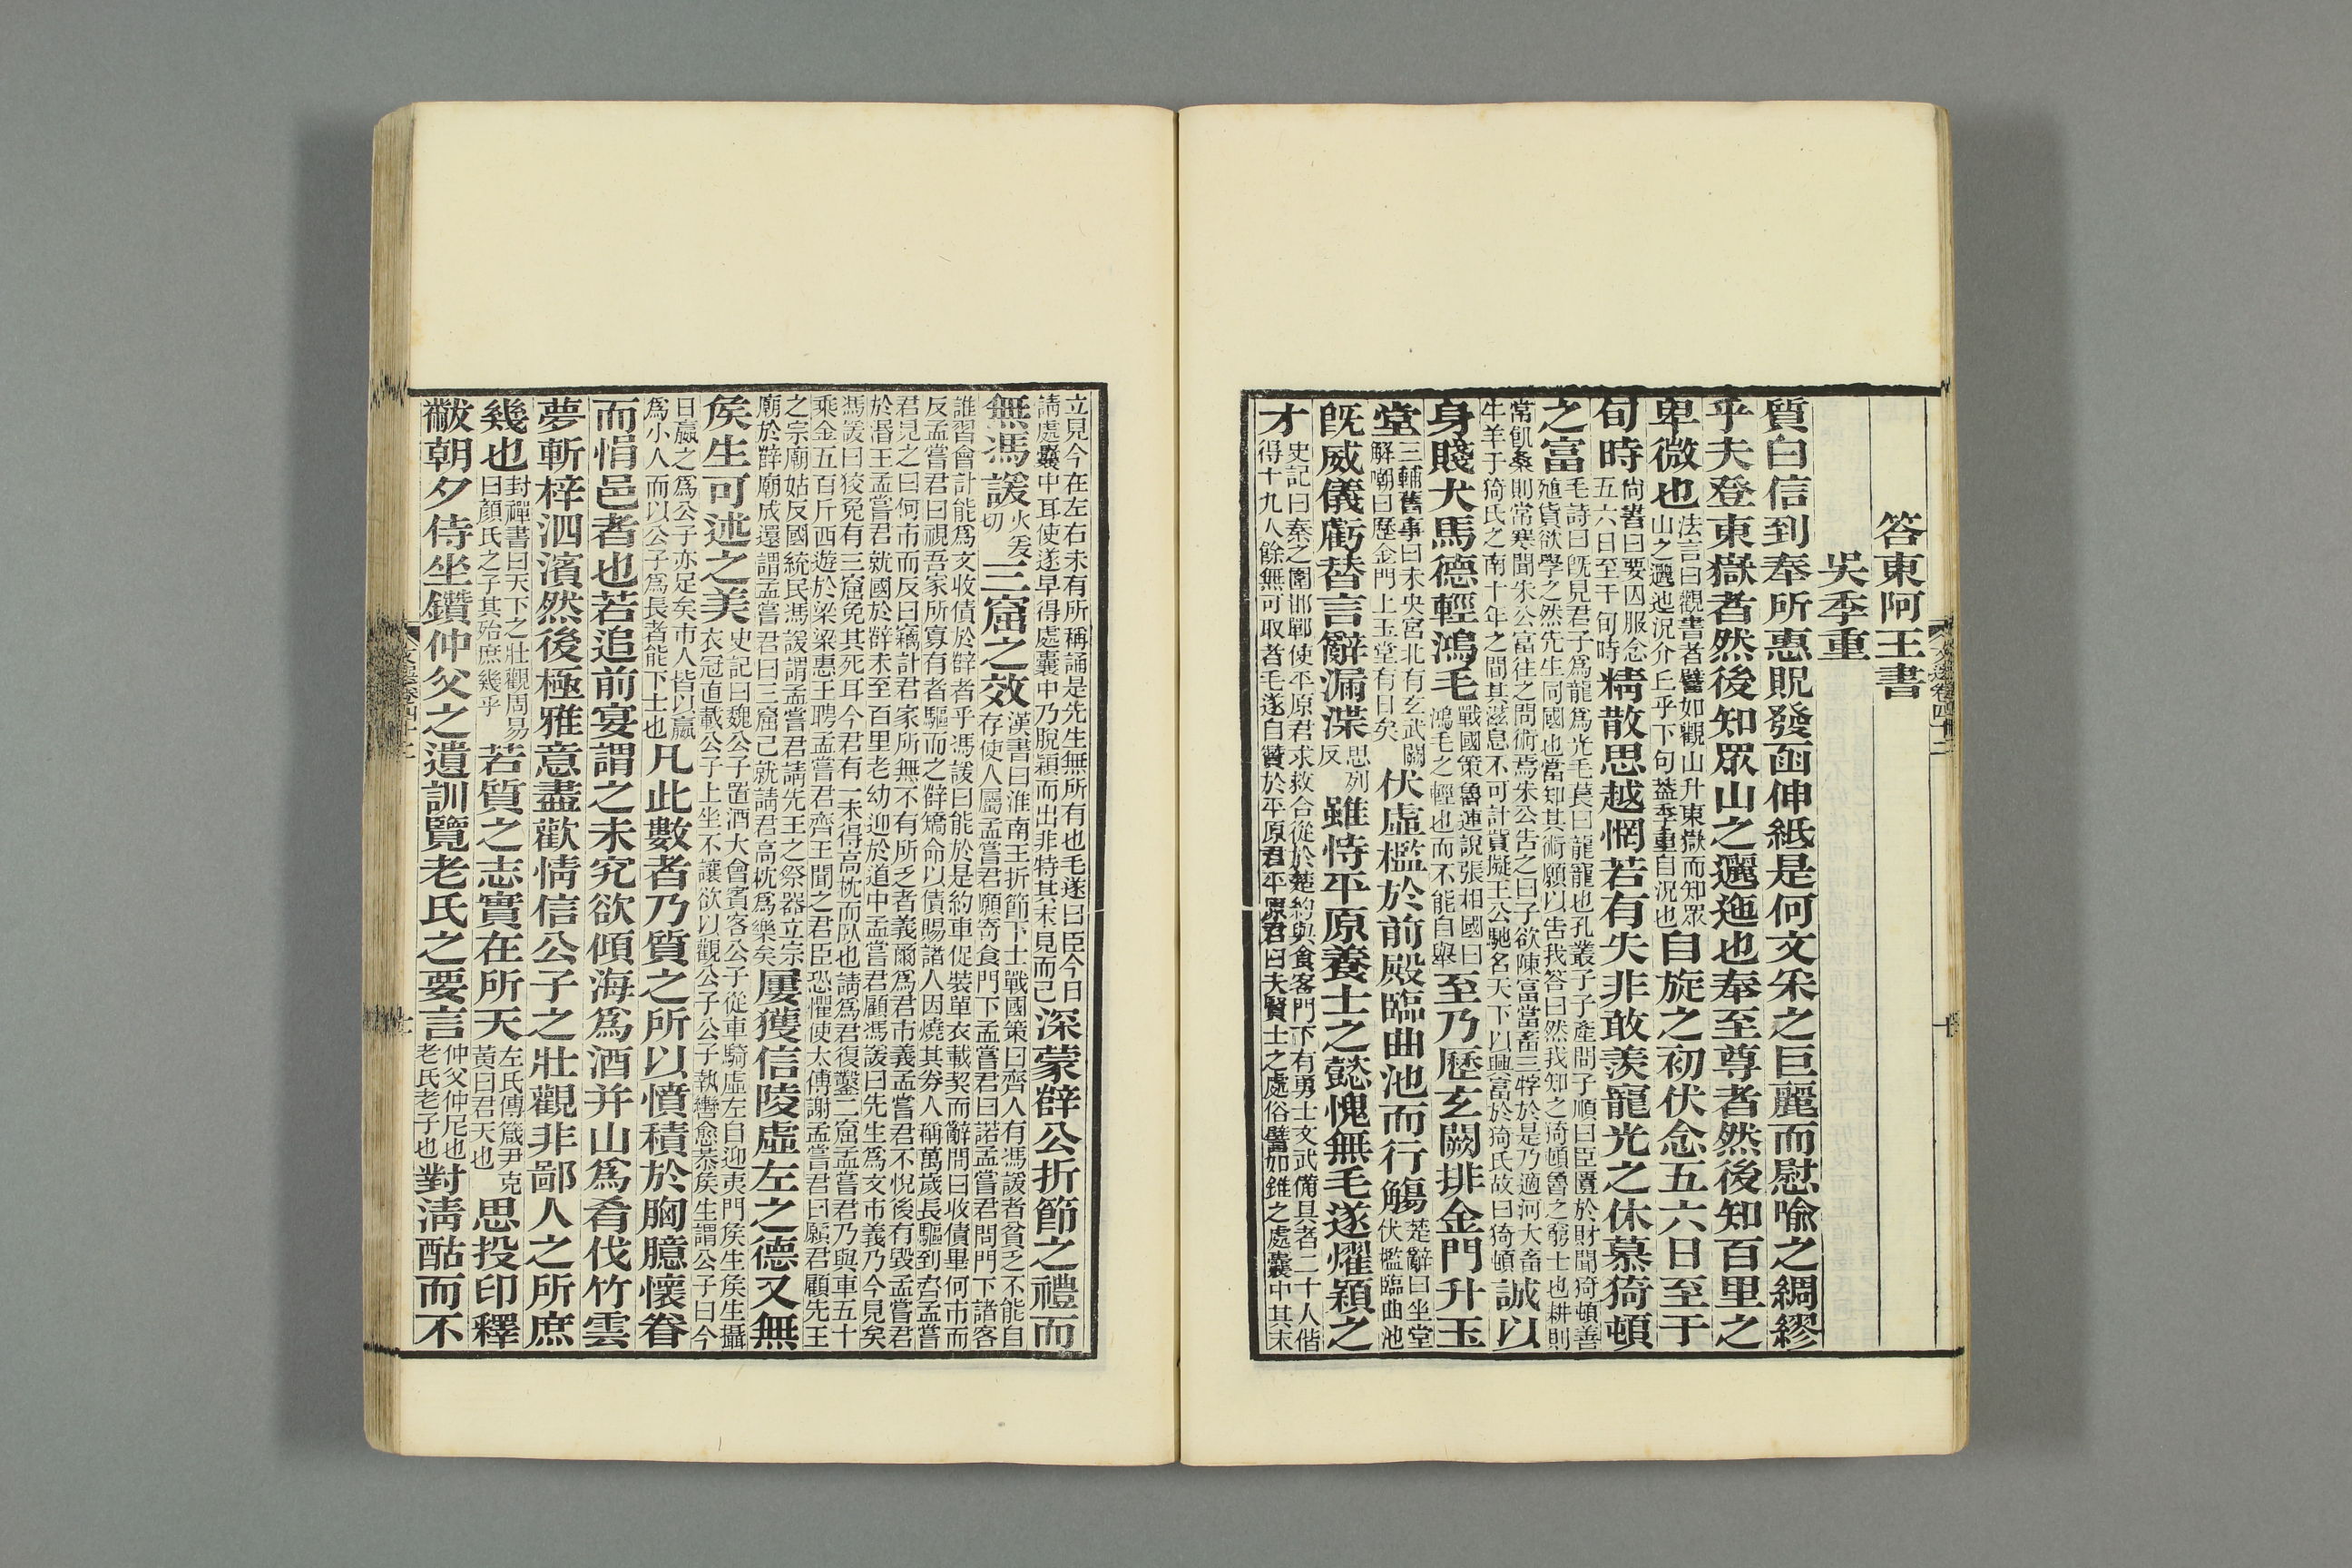 答東阿王書
吳季重
質白信到奉所惠貺發函伸紙是何文采之巨麗而慰喻之綢繆
乎夫登東嶽者然後知眾山之邐迤也奉至尊者然後知百里之
卑微也法言曰觀書者譬如觀山升東嶽而知眾山之邐迆況介丘乎下句葢季重自況也自旋之初伏念五六日至于
旬時尚書曰要囚服念五六日至于旬時精散思越惘若有失非敢羨寵光之休慕猗頓
之富毛詩曰旣見君子為龍為光毛萇曰龍寵也孔叢子子產問子順曰臣匱於財聞猗頓善殖貨欲學之然先生同國也當知其術願以告我答曰然我知之猗頓魯之窮士也耕則
常飢桑則常寒聞朱公富往之問術焉朱公告之曰子欲陳富當畜三牸於是乃適河大畜牛羊于猗氏之南十年之間其滋息不可計貲擬王公馳名天下以興富於猗氏故曰猗頓誠以
身賤犬馬德輕鴻毛戰國策魯連說張相國曰鴻毛之輕也而不能自舉至乃歷玄闕排金門升玉
堂三輔舊事曰未央宮北有玄武闕解嘲曰歷金門上玉堂有日矣伏虛檻於前殿臨曲池而行觴楚辭曰坐堂伏檻臨曲池
旣威儀虧替言辭漏渫思列反雖恃平原養士之懿愧無毛遂燿穎之
才史記曰秦之圍邯鄲使平原君求救合從於楚約與食客門下有勇士文武備具者二十人偕得十九人餘無可取者毛遂自贊於平原君平原君曰夫賢士之處俗譬如錐之處囊中其末
立見今在左右未有所稱誦是先生無所有也毛遂曰臣今日請處囊中耳使遂早得處囊中乃脫穎而出非特其末見而已深蒙薛公折節之禮而
無馮諼火爰切三窟之效漢書曰淮南王折節下士戰國策曰齊人有馮諼者貧乏不能自存使人屬孟嘗君願寄食門下孟嘗君曰諾孟嘗君問門下諸客
誰習會計能為文收債於薛者乎馮諼曰能於是約車促裝單衣載契而辭問曰收債畢何市而反孟嘗君曰視吾家所寡有者驅而之薛矯命以債賜諸人因燒其券人稱萬歲長驅到齊孟嘗
君見之曰何市而反曰竊計君家所無不有所乏者義爾為君市義孟嘗君不悅後有毀孟嘗君於湣王孟嘗君就國於薛未至百里老幼迎於道中孟嘗君顧馮諼曰先生為文市義乃今見矣
馮諼曰狡兔有三窟免其死耳今君有一未得高枕而臥也請為君復鑿二窟孟嘗君乃與車五十乘金五百斤西遊於梁梁惠王聘孟嘗君齊王聞之君臣恐懼使太傅謝孟嘗君曰願君顧先王
之宗廟姑反國統民馮諼謂孟嘗君請先王之祭器立宗廟於薛廟成還謂孟嘗君曰三窟已就請君高枕為樂矣屢獲信陵虛左之德又無
矦生可述之美史記曰魏公子置酒大會賓客公子從車騎虛左自迎夷門矦生矦生攝衣冠直載公子上坐不讓欲以觀公子公子執轡愈恭矦生謂公子曰今
日嬴之為公子亦足矣市人皆以嬴為小人而以公子為長者能下士也凡此數者乃質之所以憤積於胸臆懷眷
而悁邑者也若追前宴謂之未究欲傾海為酒并山為肴伐竹雲
夢斬梓泗濱然後極雅意盡歡情信公子之壯觀非鄙人之所庶
幾也封禪書曰天下之壯觀周易曰顏氏之子其殆庶幾乎若質之志實在所天左氏傳箴尹克黃曰君天也思投印釋
黻朝夕侍坐鑽仲父之遺訓覽老氏之要言仲父仲尼也老氏老子也對淸酤而不